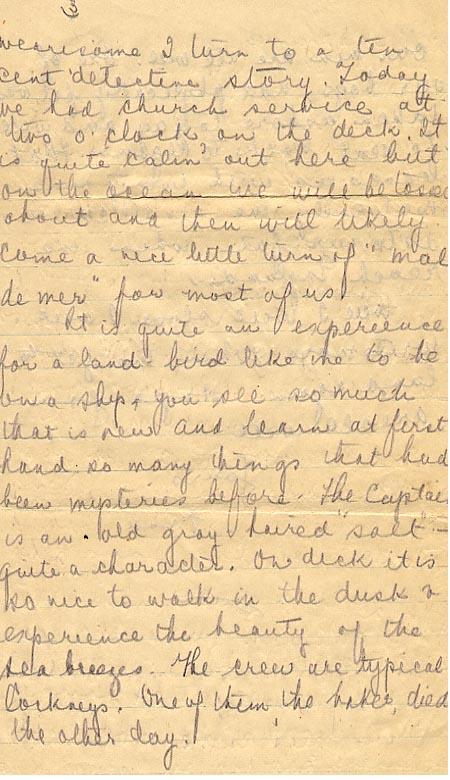 3
wearisome I turn to a ten
cent detective story. Today
we had church service at
two o'clock on the deck. It
is quite calm out here but
on the ocean we will be tossed
about and then will likely
come a nice little turn of "mal
de mer" for most of us.
It is quite an experience
for a land-bird like me to be
on a ship, you see so much
that is new and learn at first
hand so many things that had
been mysteries before. The Captai
is an old gray haired "salt" -
quite a character. On deck it is
so nice to walk in the dusk &
experience the beauty of the
sea breezes. The crew are typical
Cockneys. One of them, the baker, died
the other day.